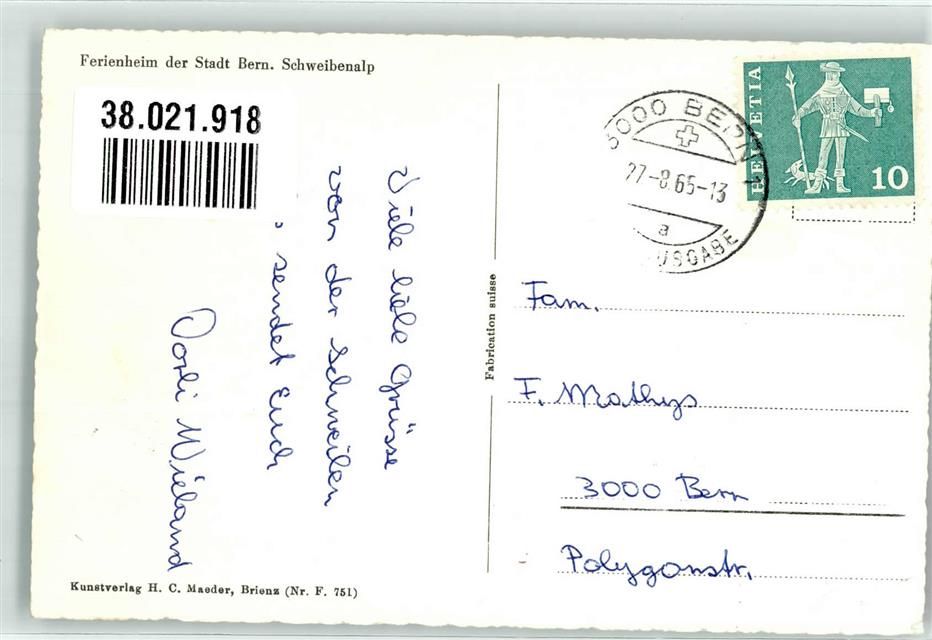 Ferienheim der Stadt Bern. Schweibenalp
38.021.918
Viele liebe Grüsse
von der Schweiben
sendet Euch
Dorli Wieland
Kunstverlag H. C. Maeder, Brienz (Nr. F. 751)
Fabrication suisse
3000 BERN 1
27-8.65-13
a
USGABE
HELVETIA
10
Fam.
F. Mathys
3000 Bern
Polygonstr.